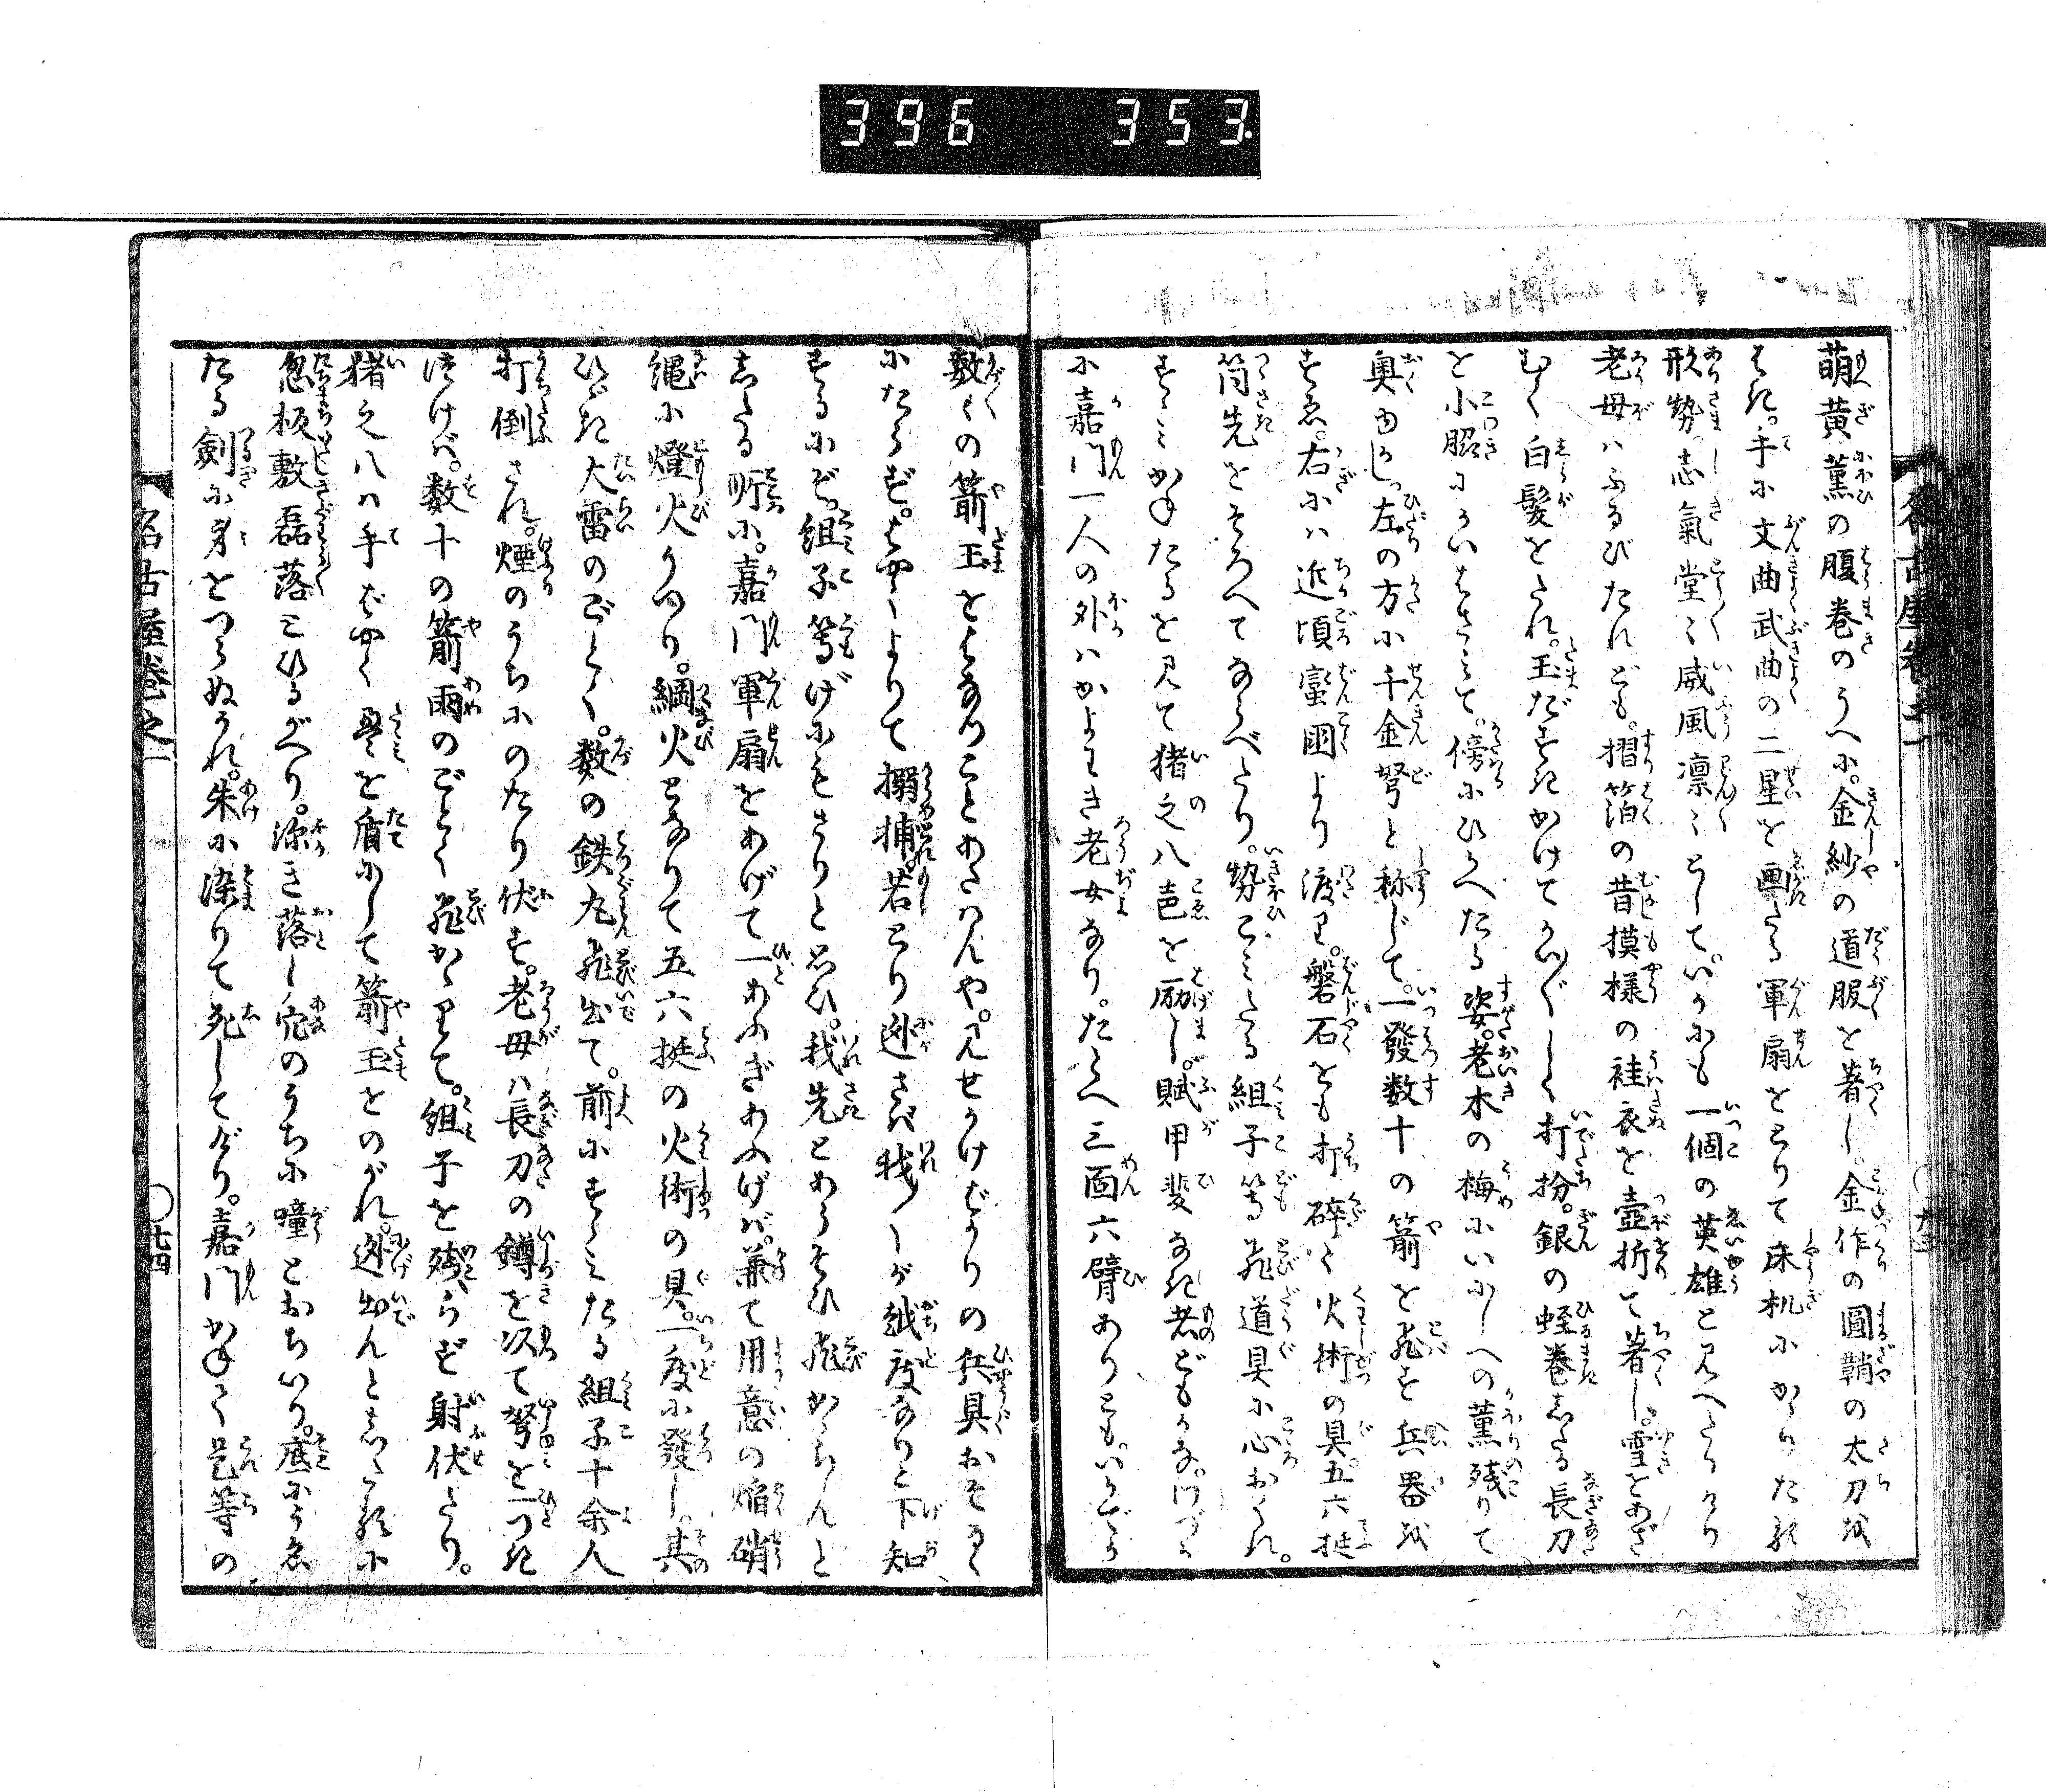 396 353
萌黄薫の腹巻のうへに。金紗の道服を着し。金作の圓鞘の太刀を
はき。手に文曲武曲の二星を画たる軍扇をとりて床机にかゝりたる
形勢。志氣堂〻威風凛〻として。いかにも一個の英雄と見へたりけり
老母ハふるびたれども。摺箔の昔摸様の袿衣を壺折て着し。雪をあざ
むく白髪をたれ。玉だすきかけてかひ〴〵しく打扮。銀の蛭巻したる長刀
を小脇にかいはさみて。傍にひかへたる姿。老木の梅にいにしへの薫残りて
奥ゆかし。左の方に千金弩と称じて。一發数十の箭を飛す兵器を
すゑ。右にハ近頃蛮国より渡りし。磐石をも打碎く火術の具。五六挺
筒先をそろへてならべたり。勢こみたる組子等飛道具に心おくれ。
すゝみかねたるを見て猪之八声を励し。賦甲斐なき者どもかな。
に嘉門一人の外ハかよわき老女なり。たとへ三面六臂ありとも。いかでか
数〻の箭玉をはなつことあたハんや。見せかけばかりの兵具おそるゝ
にたらず。はやくよりて搦捕。若とり逃さバ我〻が越度なりと下知
するにぞ。組子等げにもさりと思ひ。我先とあらそひ飛かゝらんと
したる所に。嘉門軍扇をあげて一あふぎあふげバ。兼て用意の焔硝
縄に燈火うつり。綱火となりて五六挺の火術の具。一度に發し。其
ひゞき大雷のごとく。数の鉄丸飛出て。前にすゝみたる組子十余人
打倒され。煙のうちにのたり伏す。老母ハ長刀の鐏を以て弩を一つき
つけバ。数十の箭雨のごとく飛かゝりて。組子を残らず射伏たり。
猪之八ハ手ばやく畳を盾にして箭玉をのがれ。逃出んとしたるに
忽板敷磊落とひるがへり。深き落し穴のうちに噇とおちいり。底にうゑ
たる剣に身をつらぬかれ。朱に染りて死してげり。嘉門かねて是等の
名古屋巻之二
七四